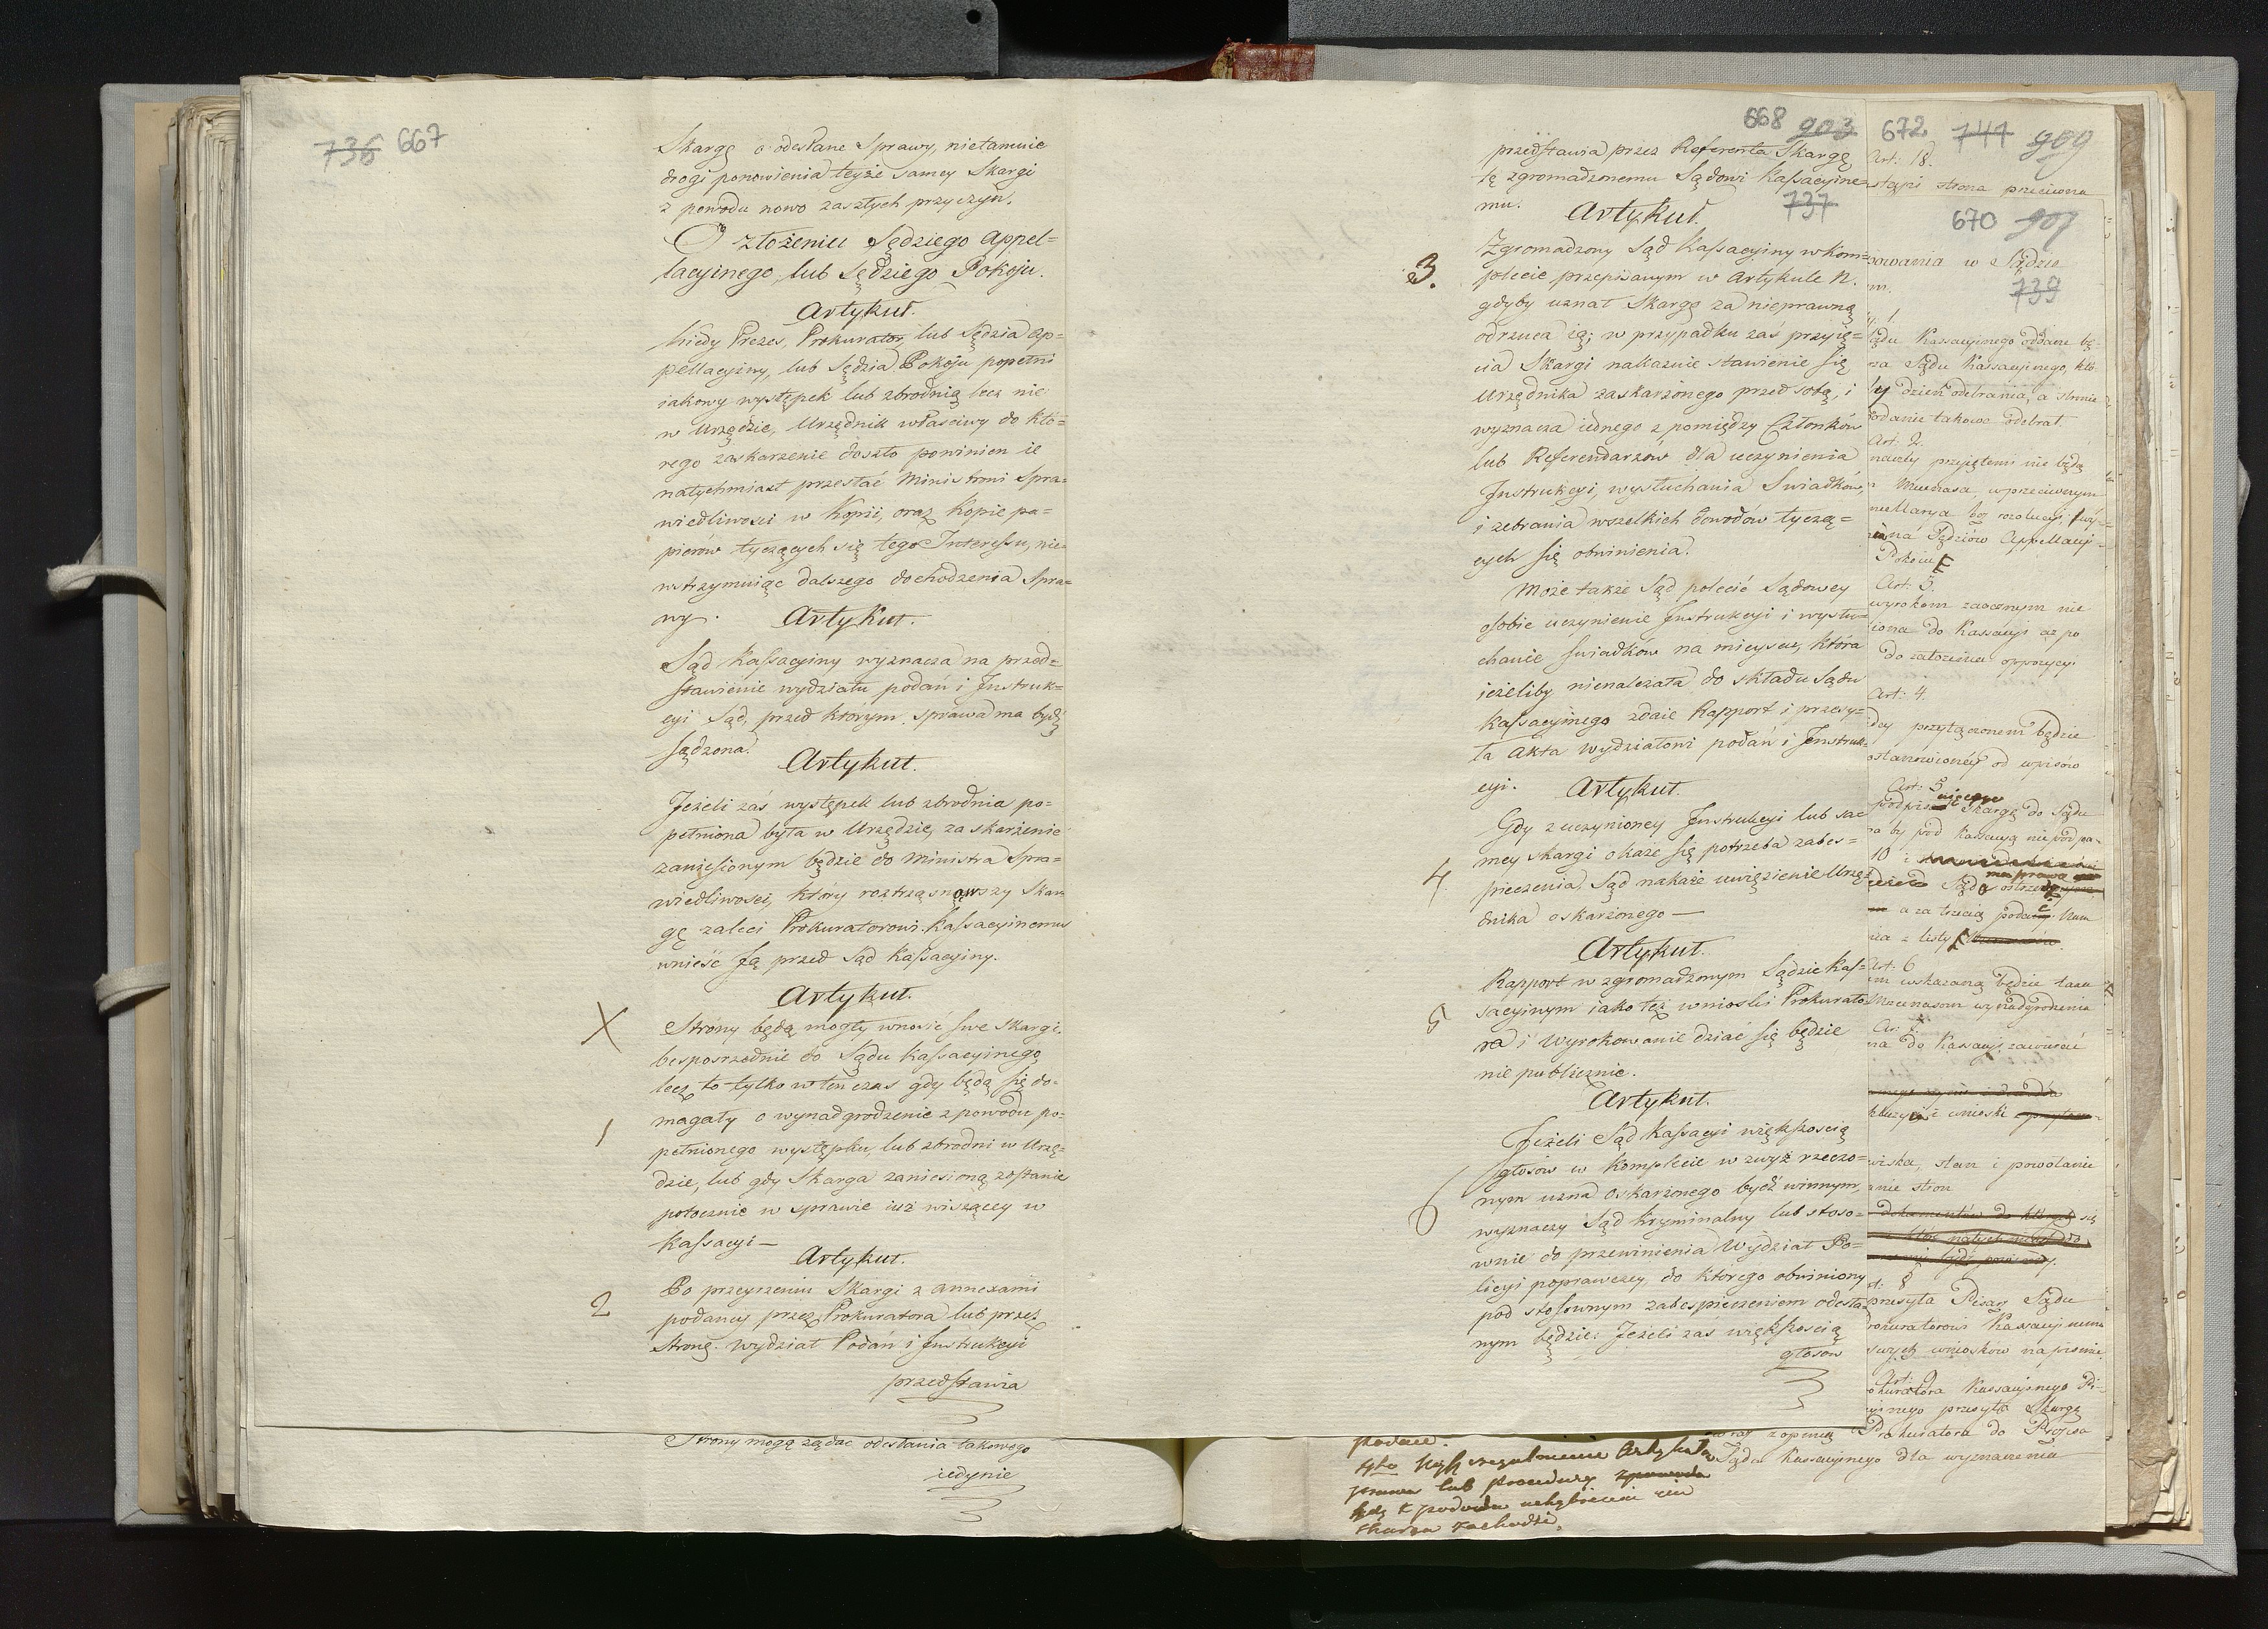 736 667
Skargę o odesłane Sprawy, nietamuie
drogi ponowienia teyże samey Skargi
z powodu nowo zaszłych przyczyn.
O złożeniu Sędziego Appel=
lacyinego, lub Sędziego Pokoju.
Artykuł.
Kiedy Prezes, Prokurator, lub Sędzia Ap=
pellacyiny, lub Sędzia Pokoju popełni
iakowy występek lub zbrodnią lecz nie
w Urzędzie, Urzędnik właściwy do któ=
rego zaskarżenie doszło powinien ie
natychmiast przesłać Ministrowi Spra=
wiedliwości w Kopii, oraz Kopie pa=
pierów tyczących się tego Interessu, nie=
wstrzymuiąc dalszego dochodzenia Spra=
wy.
Artykuł.
Sąd Kassacyiny wyznacza na przed=
stawienie wydziału podań i Instruk=
cyi Sąd, przed którym sprawa ma bydź
sądzona.
Artykuł.
Jeżeli zaś występek lub zbrodnia po=
pełniona była w Urzędzie, zaskarżenie
zaniesionym będzie do Ministra Spra=
wiedliwości, który roztrząsnąwszy Skar
gę zaleci Prokuratorowi Kassacyinemu
wnieść Ją przed Sąd Kassacyiny.
Artykuł.
X
Strony będą mogły wnosić swe skargi
bezposrzednie do Sądu Kassacyinego,
lecz to tylko w ten czas gdy będą się do=
magały o wynadgrodzenie z powodu po=
1
pełnionego występku, lub zbrodni w Urzę=
dzie, lub gdy Skarga zaniesioną zostanie
potocznie w sprawie iuż wiszącey w
Kassacyi —
Artykuł.
2
Po przeyrzeniu Skargi z annexami
podaney przez Prokuratora lub przez
Stronę. Wydział Podań i Instrukcyi
przedstawia
Strony mogą żądać odesłania takowego
iedynie
668 903
przedstawia przez Referenta Skargę
tę zgromadzonemu Sądowi Kassacyine
mu.
737
Artykuł.
3.
Zgromadzony Sąd Kassacyiny w kom=
plecie przepisanym w Artykule N.
gdyby uznał Skargę za nieprawną
odrzuca ią; w przypadku zaś przyię=
cia Skargi nakazuie stawienie się
Urzędnika zaskarżonego przed sobą, i
wyznacza iednego z pomiędzy Członków
lub Referendarzów dla uczynienia
Instrukcyi, wysłuchania Swiadków,
i zebrania wszelkich dowodów tyczą=
cych się obwinienia.
Może także Sąd polecić Sądowey
osobie uczynienie Instrukcyi i wysłu=
chanie swiadków na mieyscu, która
ieżeliby nienależała do składu Sądu
Kassacyinego zdaie Rapport i przesy=
ła Akta Wydziałowi podań i Instruk=
cyi.
Artykuł.
Gdy z uczynioney Instrukcyi lub sa=
mey skargi okaże się potrzeba zabes=
4
pieczenia, Sąd nakaże uwięzienie Urzę=
dnika oskarżonego —
Artykuł.
Rapport w zgromadzonym Sądzie Kas=
5
sacyinym iako też wnioski Prokurato
ra i Wyrokowanie dziać się będzie
nie publicznie.
Artykuł.
Jeżeli Sąd Kassacyi większością
głosów w komplecie w zwyż rzeczo=
nym uzna oskarżonego bydź winnym,
6
wyznaczy Sąd Kryminalny lub stoso=
wnie do przewinienia Wydział Po=
licyi poprawczey, do którego obwiniony
pod stosownym zabespieczeniem odesła=
nym będzie. Jeżeli zaś większością
głosów
672 741 909
Art: 18.
stąpi strona przeciwna
670 907
powania w Sądzie
739
Sądu Kassacyinego oddane bę=
sa Sądu Kassacyinego, któ=
dzień odebrania, a stronie
podanie takowe odebrał.
Art. 2.
przyiętemi nie będą
Sędziów Appellacyi=
Art: 3.
wyrokom zaocznym nie
do Kassacyi aż po
do założenia oppozycyi
Art: 4.
przyłączonem będzie
ostanowioney od wpisów
Art: 5
Skargę do Sądu
by pod kassacyą nie podpa=
a za trzecią
z listy
Art: 6
wskazaną będzie taxa
Mecenasom wynadgrodzenia
do Kassacyi zawierać
wnioski
stan i powołanie
stron
przesyła Pisarz Sądu
Prokuratorowi Kassacyinemu
swych wniosków na pismie.
Art: 9
Prokuratora Kassacyinego Pi=
przesyła Skargę
wraz z opinią Prokuratora do Prezesa
Sądu Kassacyinego dla wyznaczenia
prawa lub procedury
skarga zachodzi.